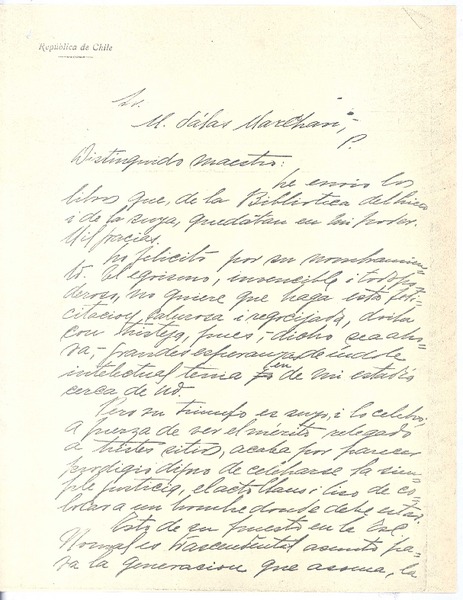 República de Chile
Sr.
M. Salas Marchan,
P.
Distinguido maestro:
Le envio los
libros que, de la Biblioteca del Liceo
i de la suya, quedaban en mi poder.
Mil gracias.
Lo felicito por su nombramien-
to. El egoismo, invencible i todopo-
deroso, no quiere que haga esta feli-
citacion calurosa i regocijada, sino
con tristeza, pues,- dicho sea
grandes esperanzas de indole
intelectual tenia en de mi estadía
cerca de Ud.
Pero su triunfo es suyo, i lo celebro;
a fuerza de ver el mérito relegado
a tristes sitios, acaba por parecer
prodigio digno de celebrarse la sim-
ple justicia, el acto llano i liso de co-
locar a un hombre donde debe estar.
Esto de su puesto en la Esc.
Normal es trascendental asunto pa-
ra la generacion que asoma, la